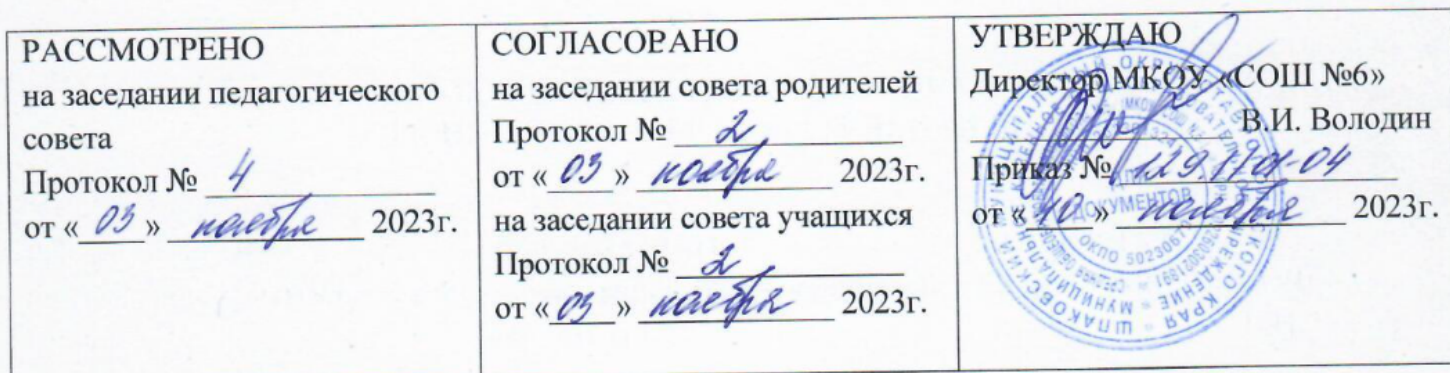 РАССМОТРЕНО
на заседании педагогического
совета
Протокол № 4
от « 03 » ноября 2023г.
СОГЛАСОРАНО
на заседании совета родителей
Протокол № 2
от « 03 » ноября 2023г.
на заседании совета учащихся
Протокол № 2
от « 03 » ноября 2023г.
УТВЕРЖДАЮ
Директор МКОУ «СОШ №6»
В.И. Володин
Приказ №
от « » ноября 2023г.
ДОКУМЕНТОВ
ШПАКОВСКИЙ